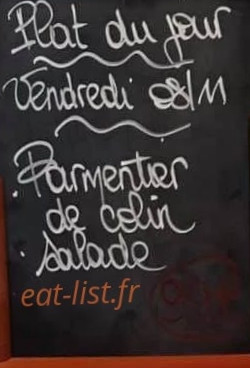 Plat du jour
Vendredi 08/11
. Parmentier
de colin
. salade
eat-list.fr